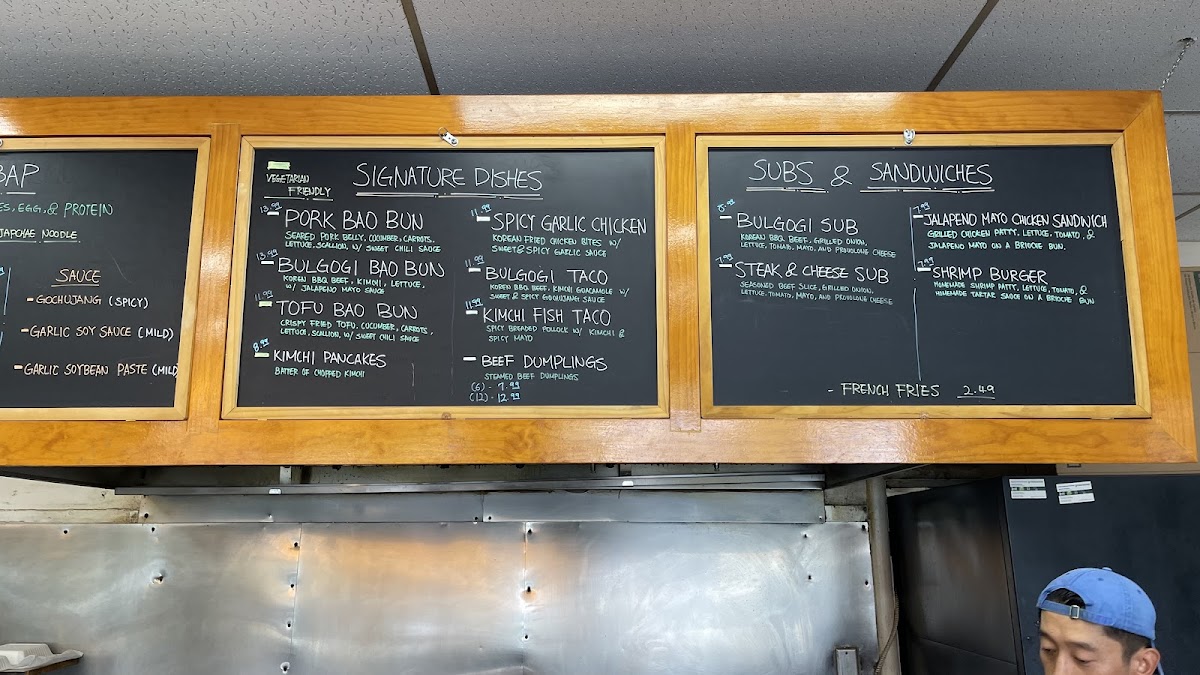 BAP
ES, EGG, & PROTEIN
JAPCHAE NOODLE
SAUCE
- GOCHUJANG (SPICY)
- GARLIC SOY SAUCE (MILD)
- GARLIC SOYBEAN PASTE (MILD
VEGETARIAN
FRIENDLY
SIGNATURE DISHES
13.99
PORK BAO BUN
SEARED PORK BELLY, COCUMBER, CARROTS,
LETTUCE, SCALLION, W/ SWEET CHILI SAUCE
13.99
BULGOGI BAO BUN
KOREN BBQ BEEF, KIMCHI, LETTUCE,
W/ JALAPENO MAYO SAUCE
11.99
TOFU BAO BUN
CRISPY FRIED TOFU, COCUMBER, CARROTS,
LETTUCE, SCALLION, W/ SWEET CHILI SAUCE
8.99
KIMCHI PANCAKES
BATTER OF CHOPPED KIMCHI
11.99
SPICY GARLIC CHICKEN
KOREAN FRIED CHICKEN BITES W/
SWEET & SPICY GARLIC SAUCE
11.99
BULGOGI TACO
KOREN BBQ BEEF, KIMCHI GUACAMOLE W/
SWEET & SPICY GOCHUJANG SAUCE
11.99
KIMCHI FISH TACO
SPICY BREADED POLLOCK W/ KIMCHI &
SPICY MAYO
- BEEF DUMPLINGS
STEAMED BEEF DUMPLINGS
(6) - 7.99
(12) - 12.99
SUBS & SANDWICHES
BULGOGI SUB
KOREAN BBQ BEEF, GRILLED ONION,
LETTUCE, TOMATO, MAYO, AND PROVOLONE CHEESE
7.99
STEAK & CHEESE SUB
SEASONED BEEF SLICE, GRILLED ONION,
LETTUCE, TOMATO, MAYO, AND PROVOLONE CHEESE
7.99
JALAPENO MAYO CHICKEN SANDWICH
GRILLED CHICKEN PATTY, LETTUCE, TOMATO, &
JALAPENO MAYO ON A BRIOCHE BUN.
7.99
SHRIMP BURGER
HOMEMADE SHRIMP PATTY, LETTUCE, TOMATO, &
HOMEMADE TARTAR SAUCE ON A BRIOCHE BUN
- FRENCH FRIES 2.49